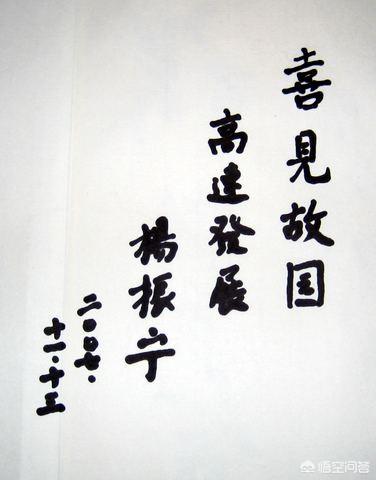 喜見故国
高速發展
楊振宁
二〇〇七.
十一.十三
悟空问答